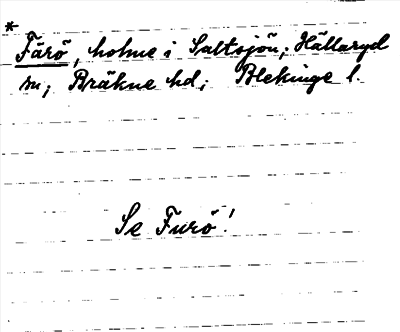 *
Färö, holme i Saltsjön; Hällaryd
sn; Bräkne hd; Blekinge l.
Se Furö!